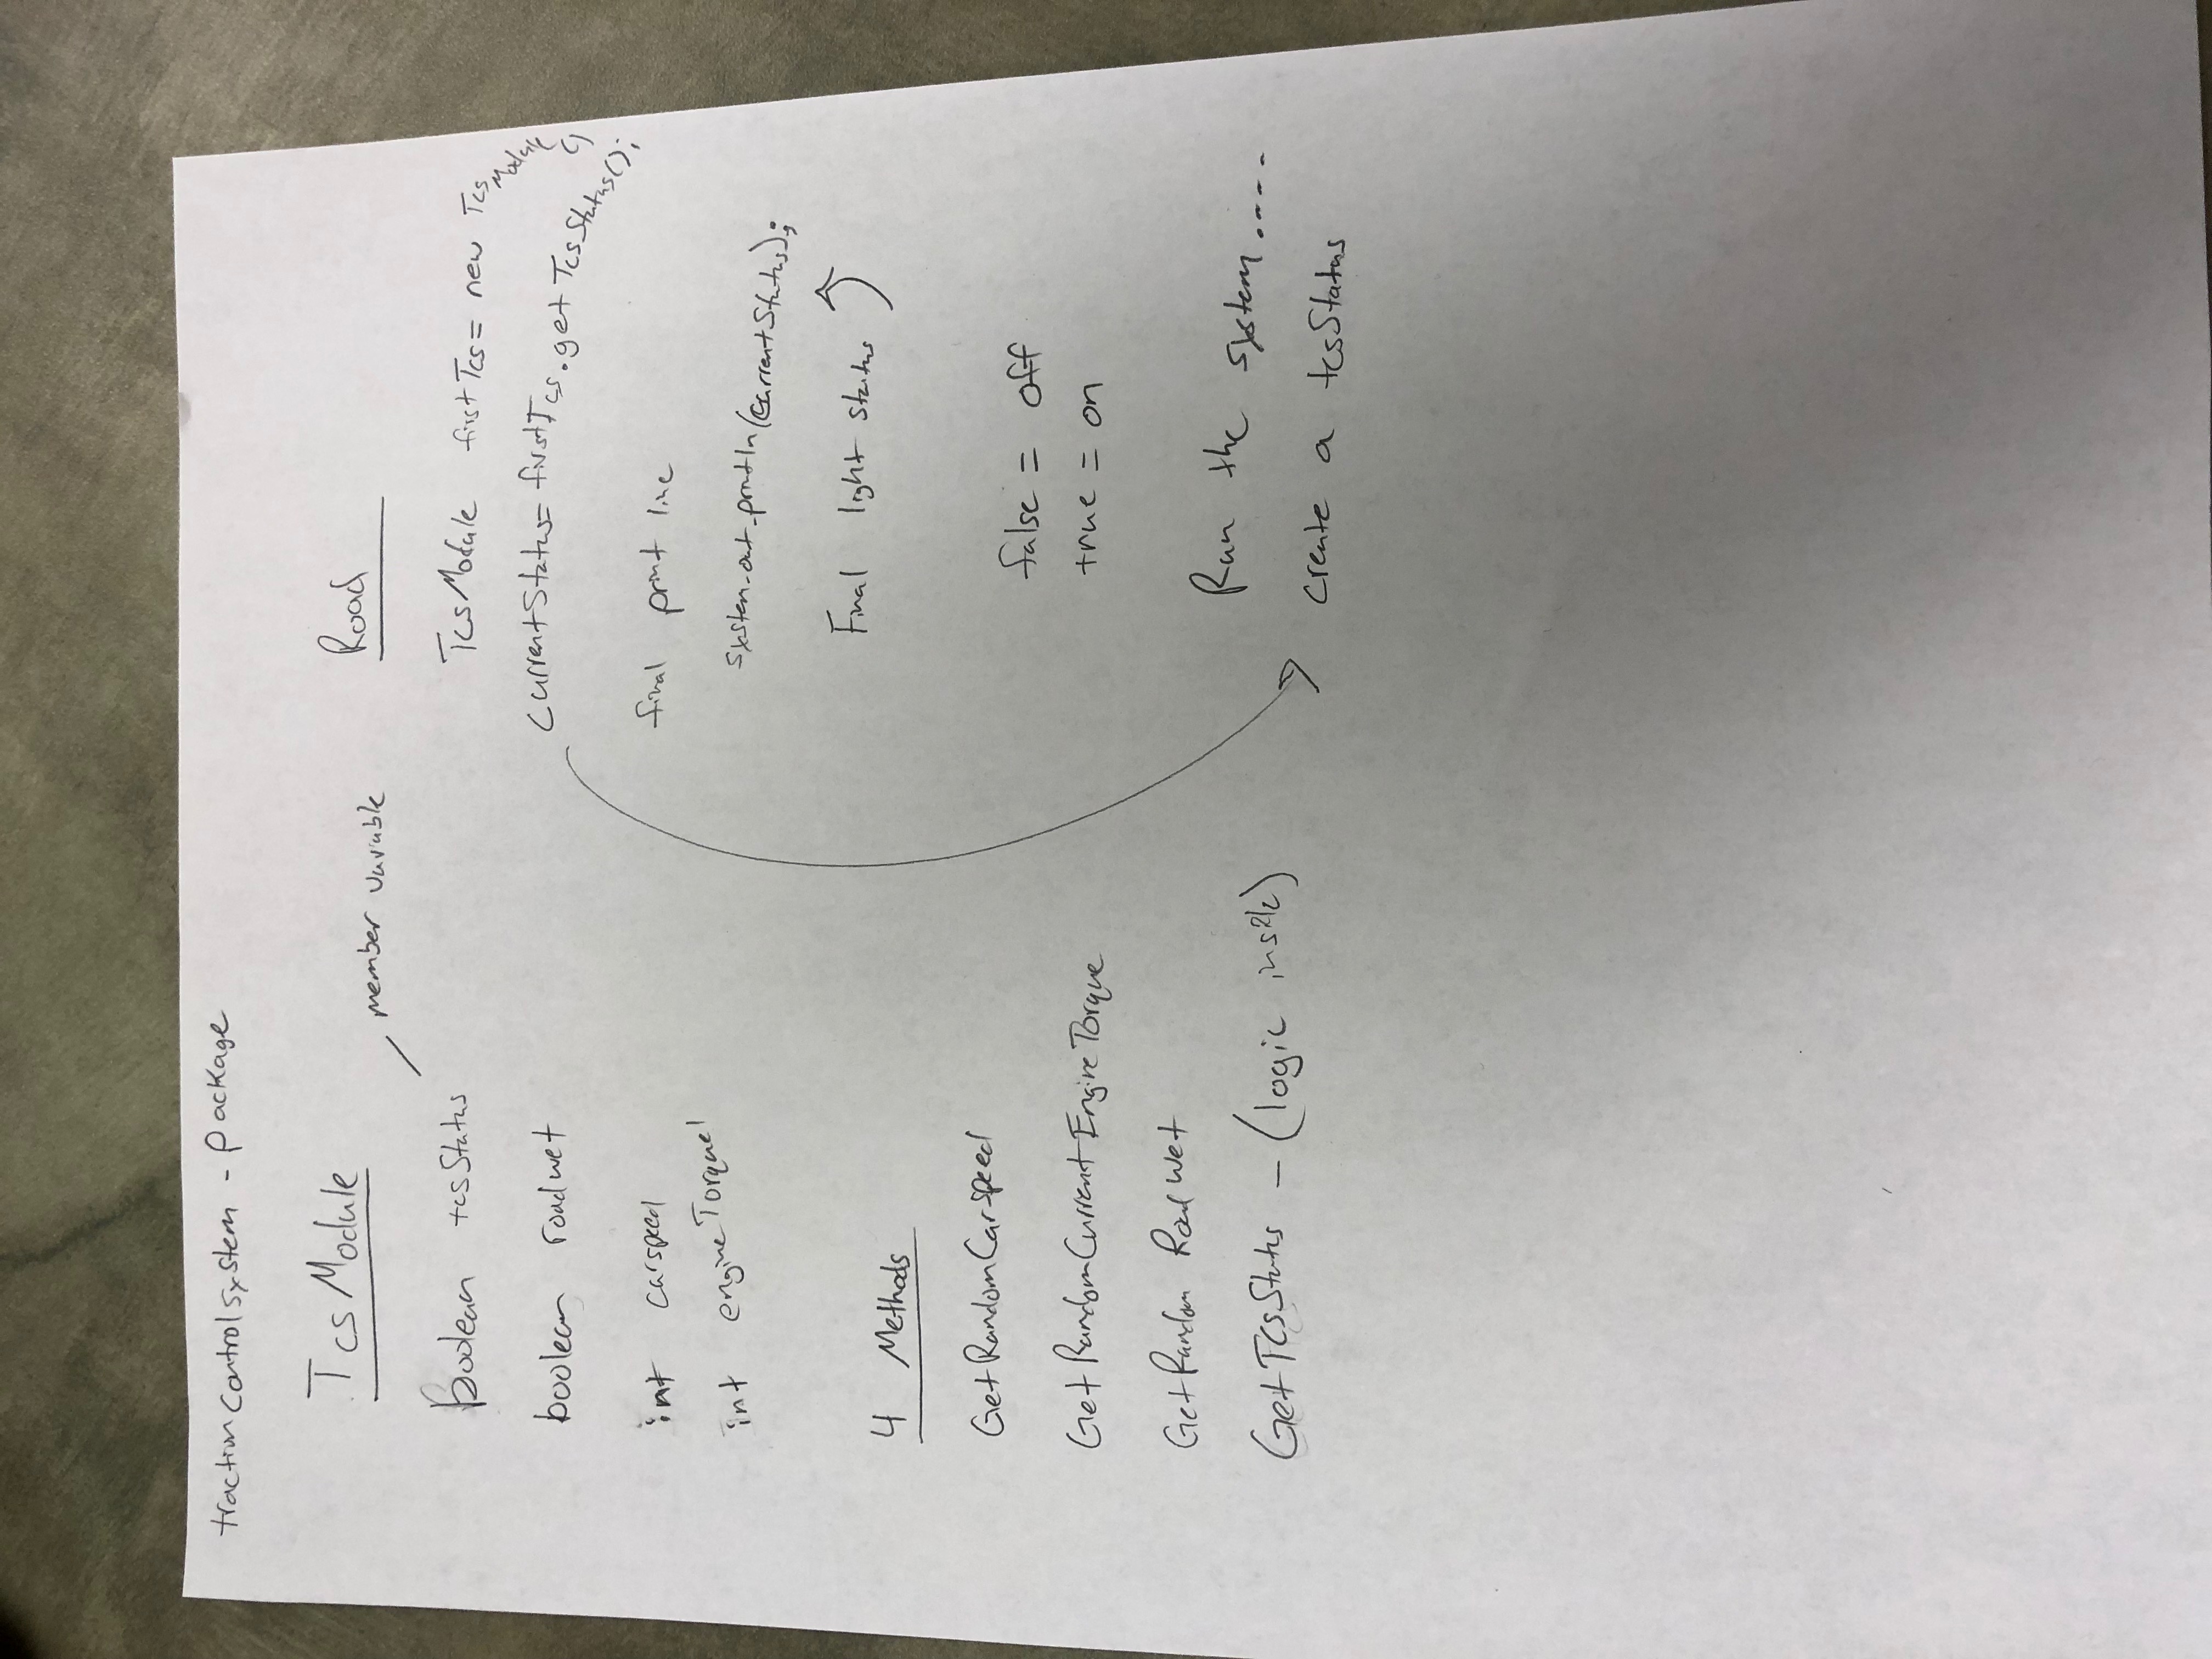 tractioncontrolsystem - package
TcsModule
member variable
Boolean tcsStatus
boolean roadwet
int carspeed
int engineTorque
4 Methods
GetRandomCarspeed
GetRandomCurrentEngineTorque
GetRandom RoadWet
GetTcsStatus - (logic inside)
Road
TcsModule firstTcs = new TcsModule()
currentStatus = firstTcs.getTcsStatus();
final print line
system.out.println(currentStatus);
Final light status
false = off
true = on
Run the system....
create a tcsStatus